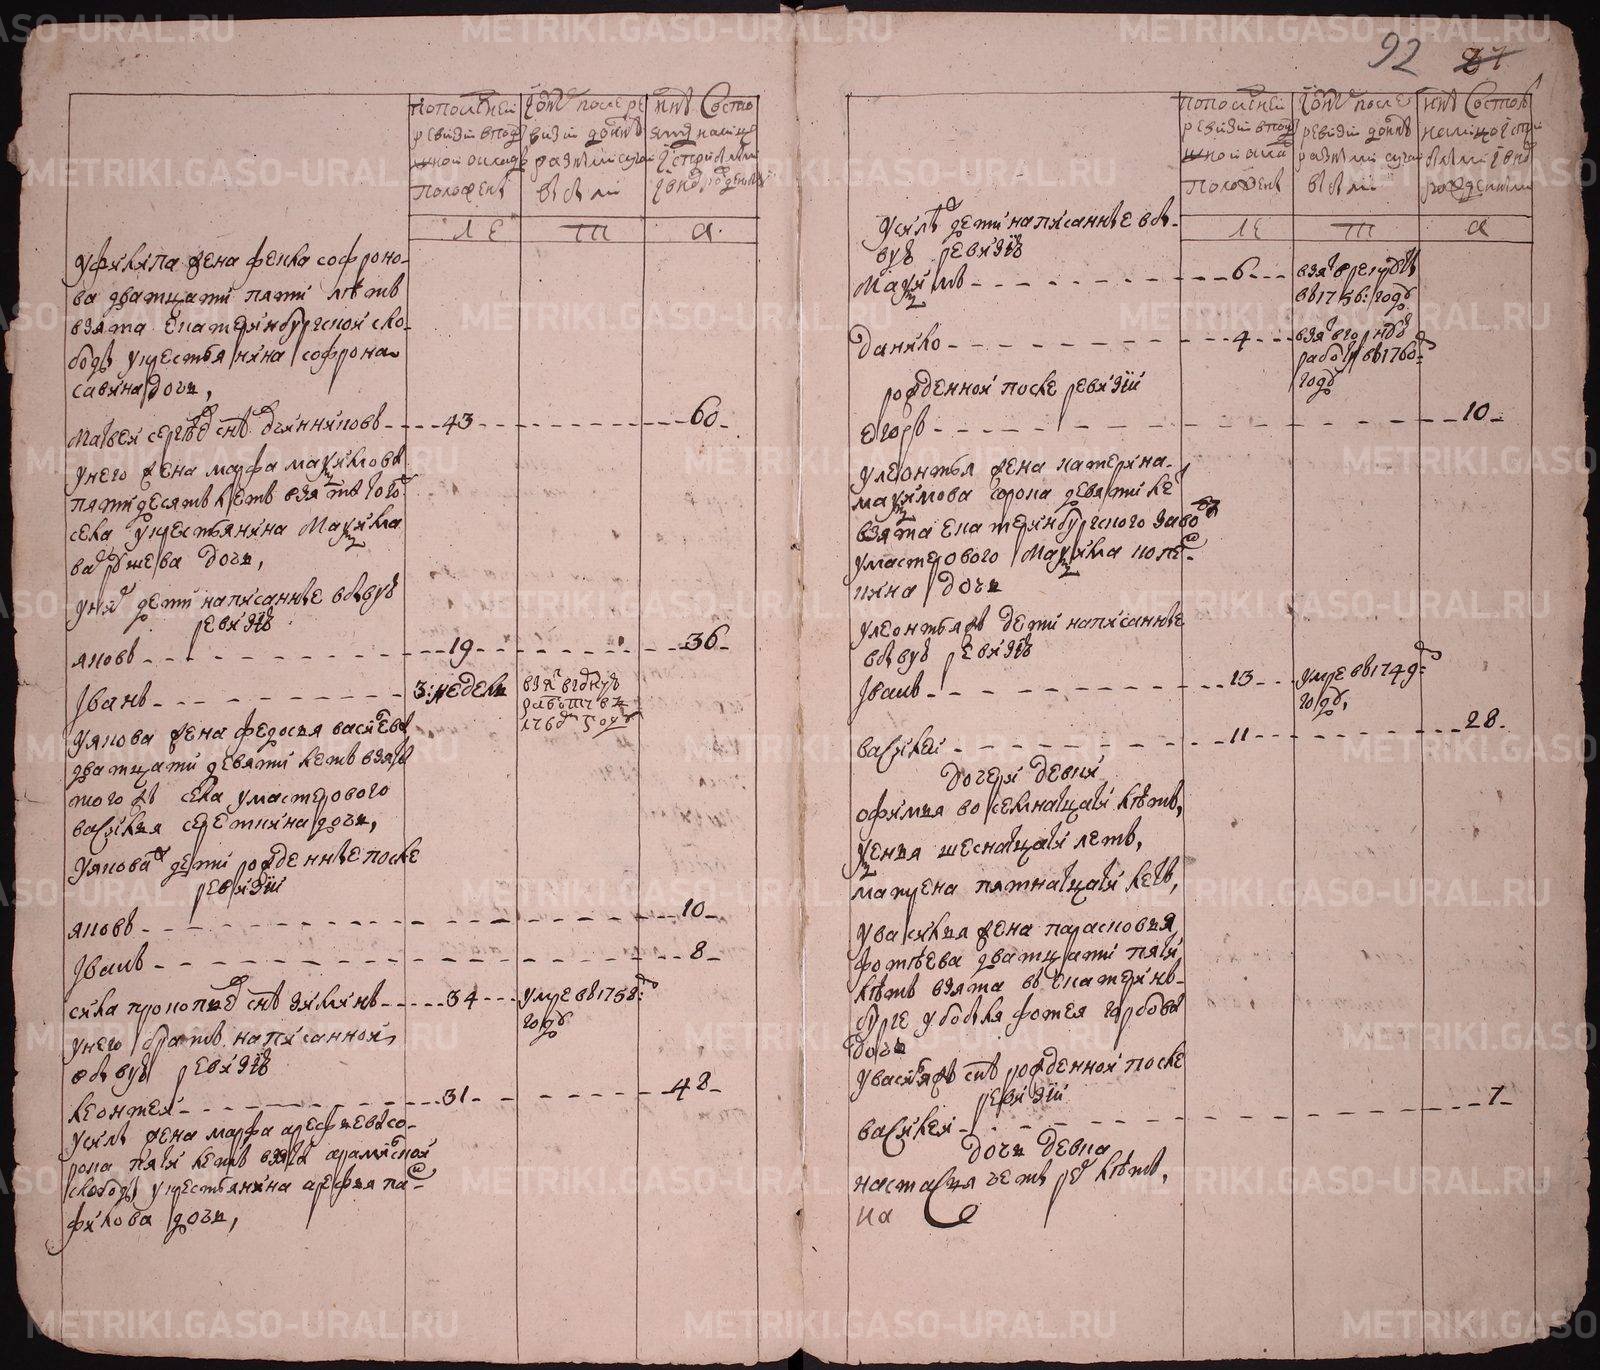 По последней
ревизии в подушной окладъ
положенъ
Ізъ того после
ревизии до нне
разными случаи
выбыли
Нне состоящия на лицо
с прибылыми
і внов рожденными
ЛЕ
ТП
А
У Филипа жена Фекла Софроно-
ва дватцати пяти летъ
взята Екатеринбургской сло-
боды у крестьянина Софрона
Савина дочь,
Матвей Сергеевъ снъ Овчинниковъ 43 60
у него жена Марфа Максимова
пятидесятъ летъ взята того
села у крестьянина Максима
дочь,
у них дети написанные в бывъ
ревизию
Яковъ 19 36
Иванъ 3: недели взятъ в рекруты
году
у Якова жена Федосья Васильева
дватцати девяти летъ взята
того ж села у мастерового
Василья дочь,
у Якова ж дети рожденные после
ревизии
Яковъ 10
Иванъ 8
Сила Прокопьевъ снъ Зилинъ 34 умре в 1758:
году
у него братъ написанной
в бывъ ревизию
Леонтей 31 48
у Силы жена Марфа Арефьева со-
рока пяти летъ взята Арамильской
слободы у крестьянина Арефья Па-
филова дочь,
92 87
По последней
ревизии в подушной окладъ
положенъ
Ізъ того после
ревизии до нне
разными случаи
выбыли
Нне состоящия
на лицо с при
былыми і внов
рожденными
ЛЕ
ТП
А
у Силы ж дети написанные в бы-
въ ревизию
Максимъ 6 взятъ в рекруты
в 1756: году
Данило 4 взятъ в горные
работы в 1760
году
рожденной после ревизии
Егоръ 10
у Леонтья жена Катерина
Максимова сорока девяти ле
взята Екатеринбургского заво
у мастерового Максима
дочь
у Леонтья ж дети написанные
в бывъ ревизию
Иванъ 13 умре в 1749:
году,
Василей 11 28
дочери девки
Офимья во семнатцати летъ,
Ксенья шеснатцати летъ,
Матрена пятнатцати летъ,
у Василья жена Парасковья
Фотеева дватцати пяти
летъ взята в Екатерин-
бурге у бобыля Фотея
дочь
у Василья ж снъ рожденной после
ревизии
Василей 7
дочь девка
Настасья четырех летъ,
На
METRIKI.GASO-URAL.RU